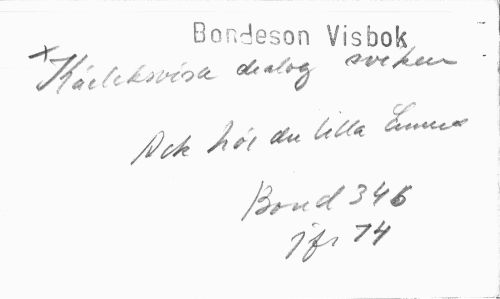 Bondeson Visbok
x Kärleksvisa dialog sviken
Ack hör du lilla Emma
Bond 346
jfr 74